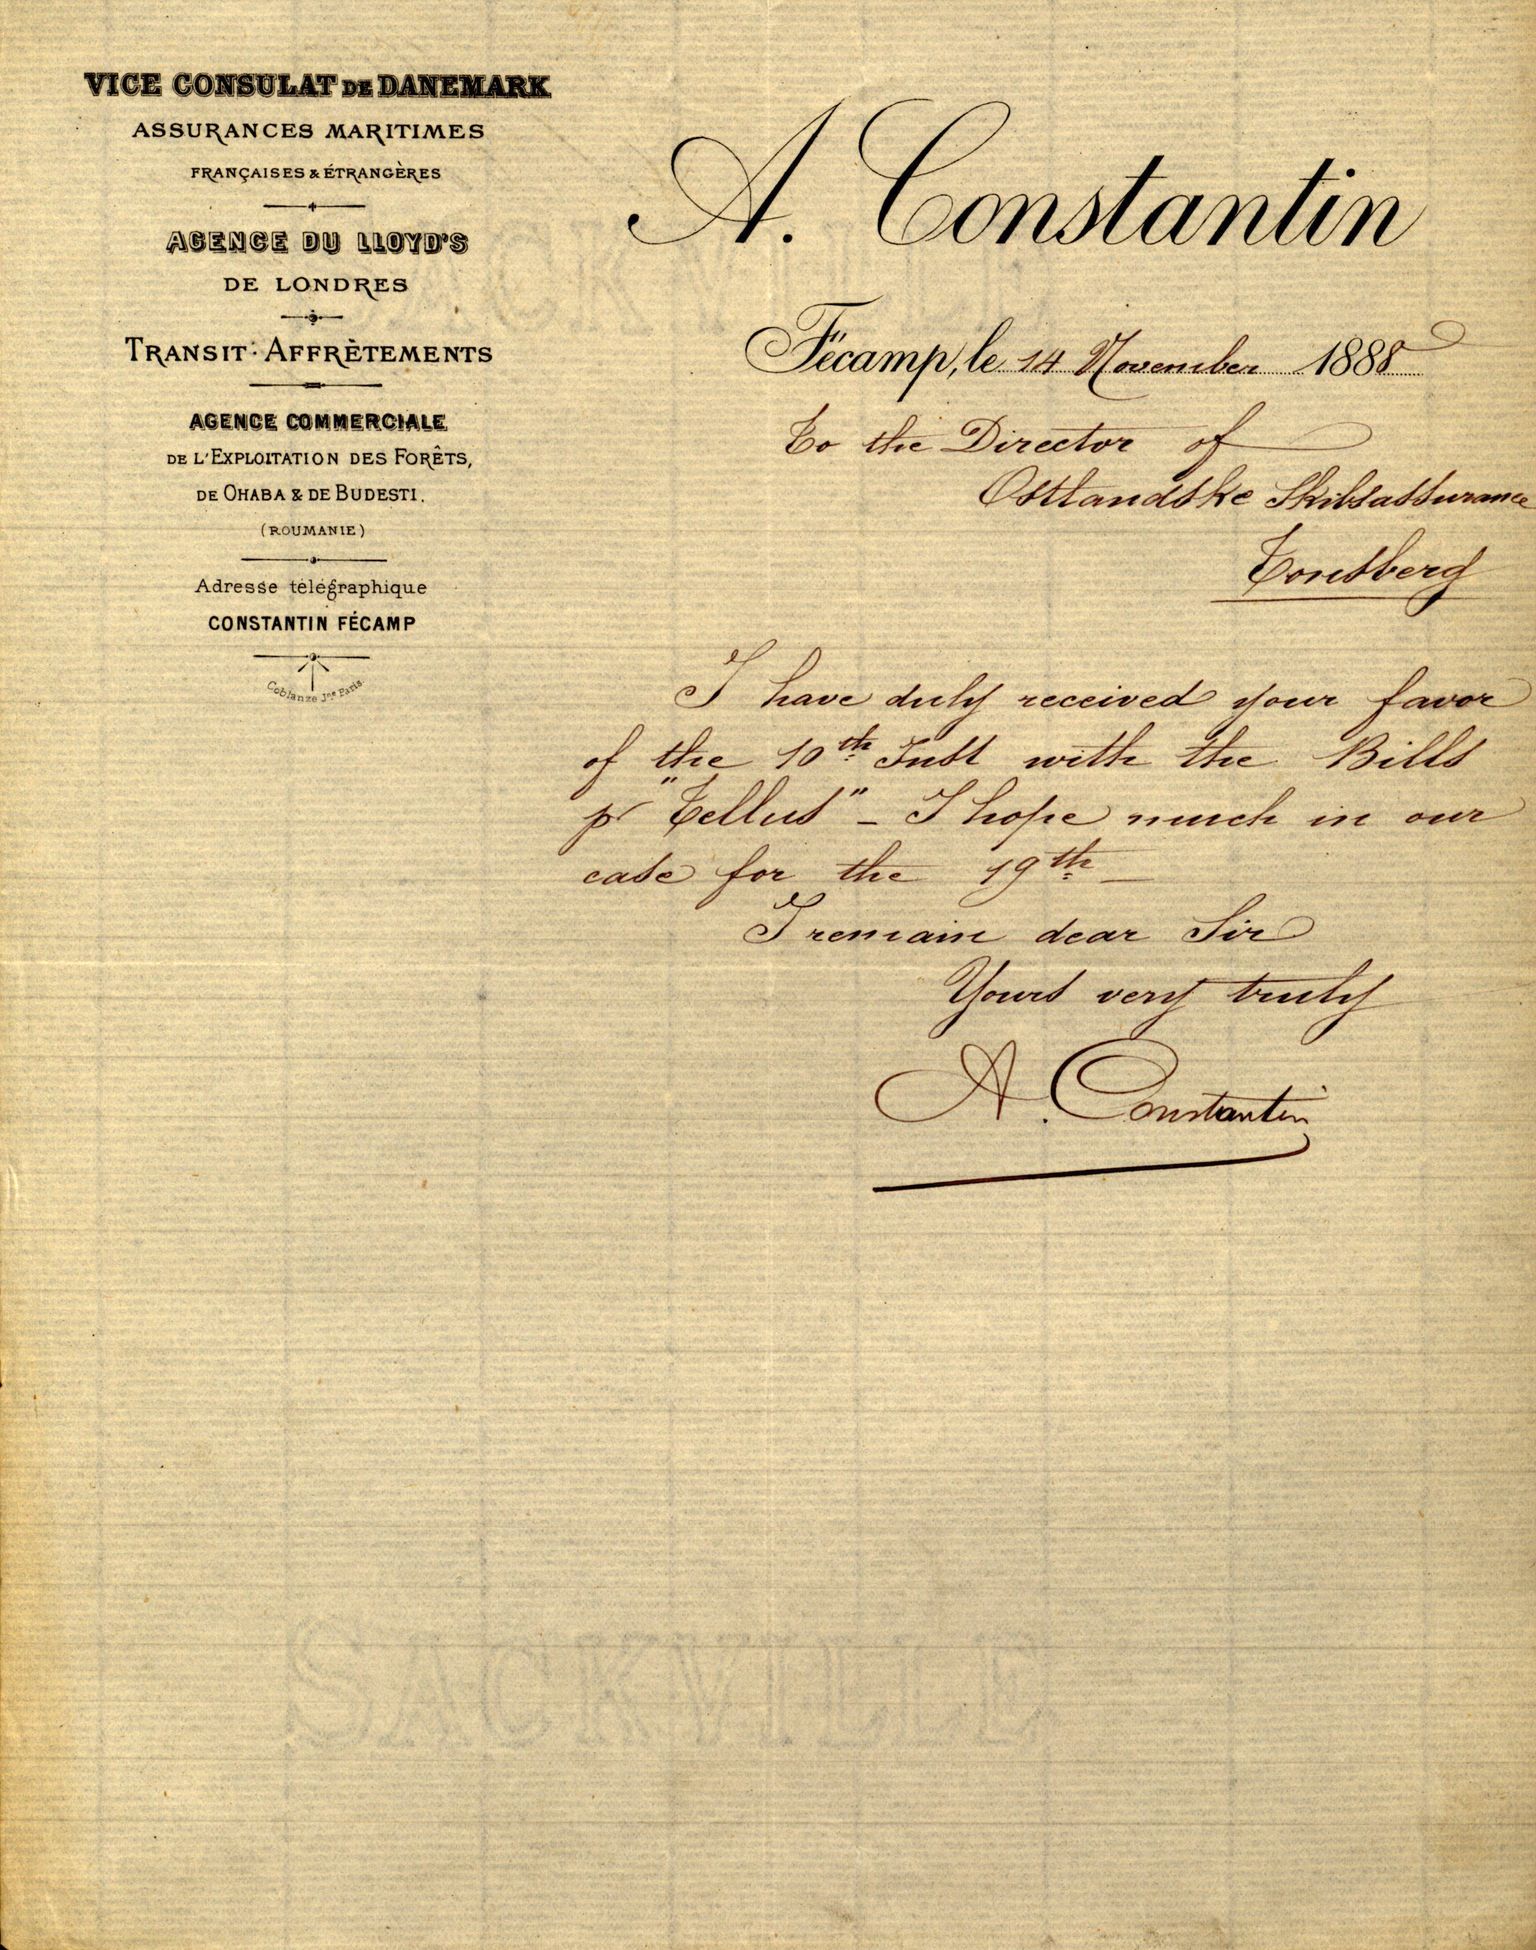 VICE CONSULAT DE DANEMARK
ASSURANCES MARITIMES
FRANÇAISES & ÉTRANGÈRES
AGENCE DU LLOYD'S
DE LONDRES
TRANSIT - AFFRÈTEMENTS
AGENCE COMMERCIALE
DE L'EXPLOITATION DES FORÊTS,
DE OHABA & DE BUDESTI.
(ROUMANIE)
Adresse télégraphique
CONSTANTIN FÉCAMP
Coblanze Jne Paris.
A. Constantin
Fécamp, le 14 November 1888
To the Director of
Ostlandske Skibsassurance
Tonsberg
I have duly received your favor
of the 10th Inst with the Bills
pr "Tellus" - I hope much in our
case for the 19th -
I remain dear Sir
Yours very truly
A. Constantin
SACKVILLE